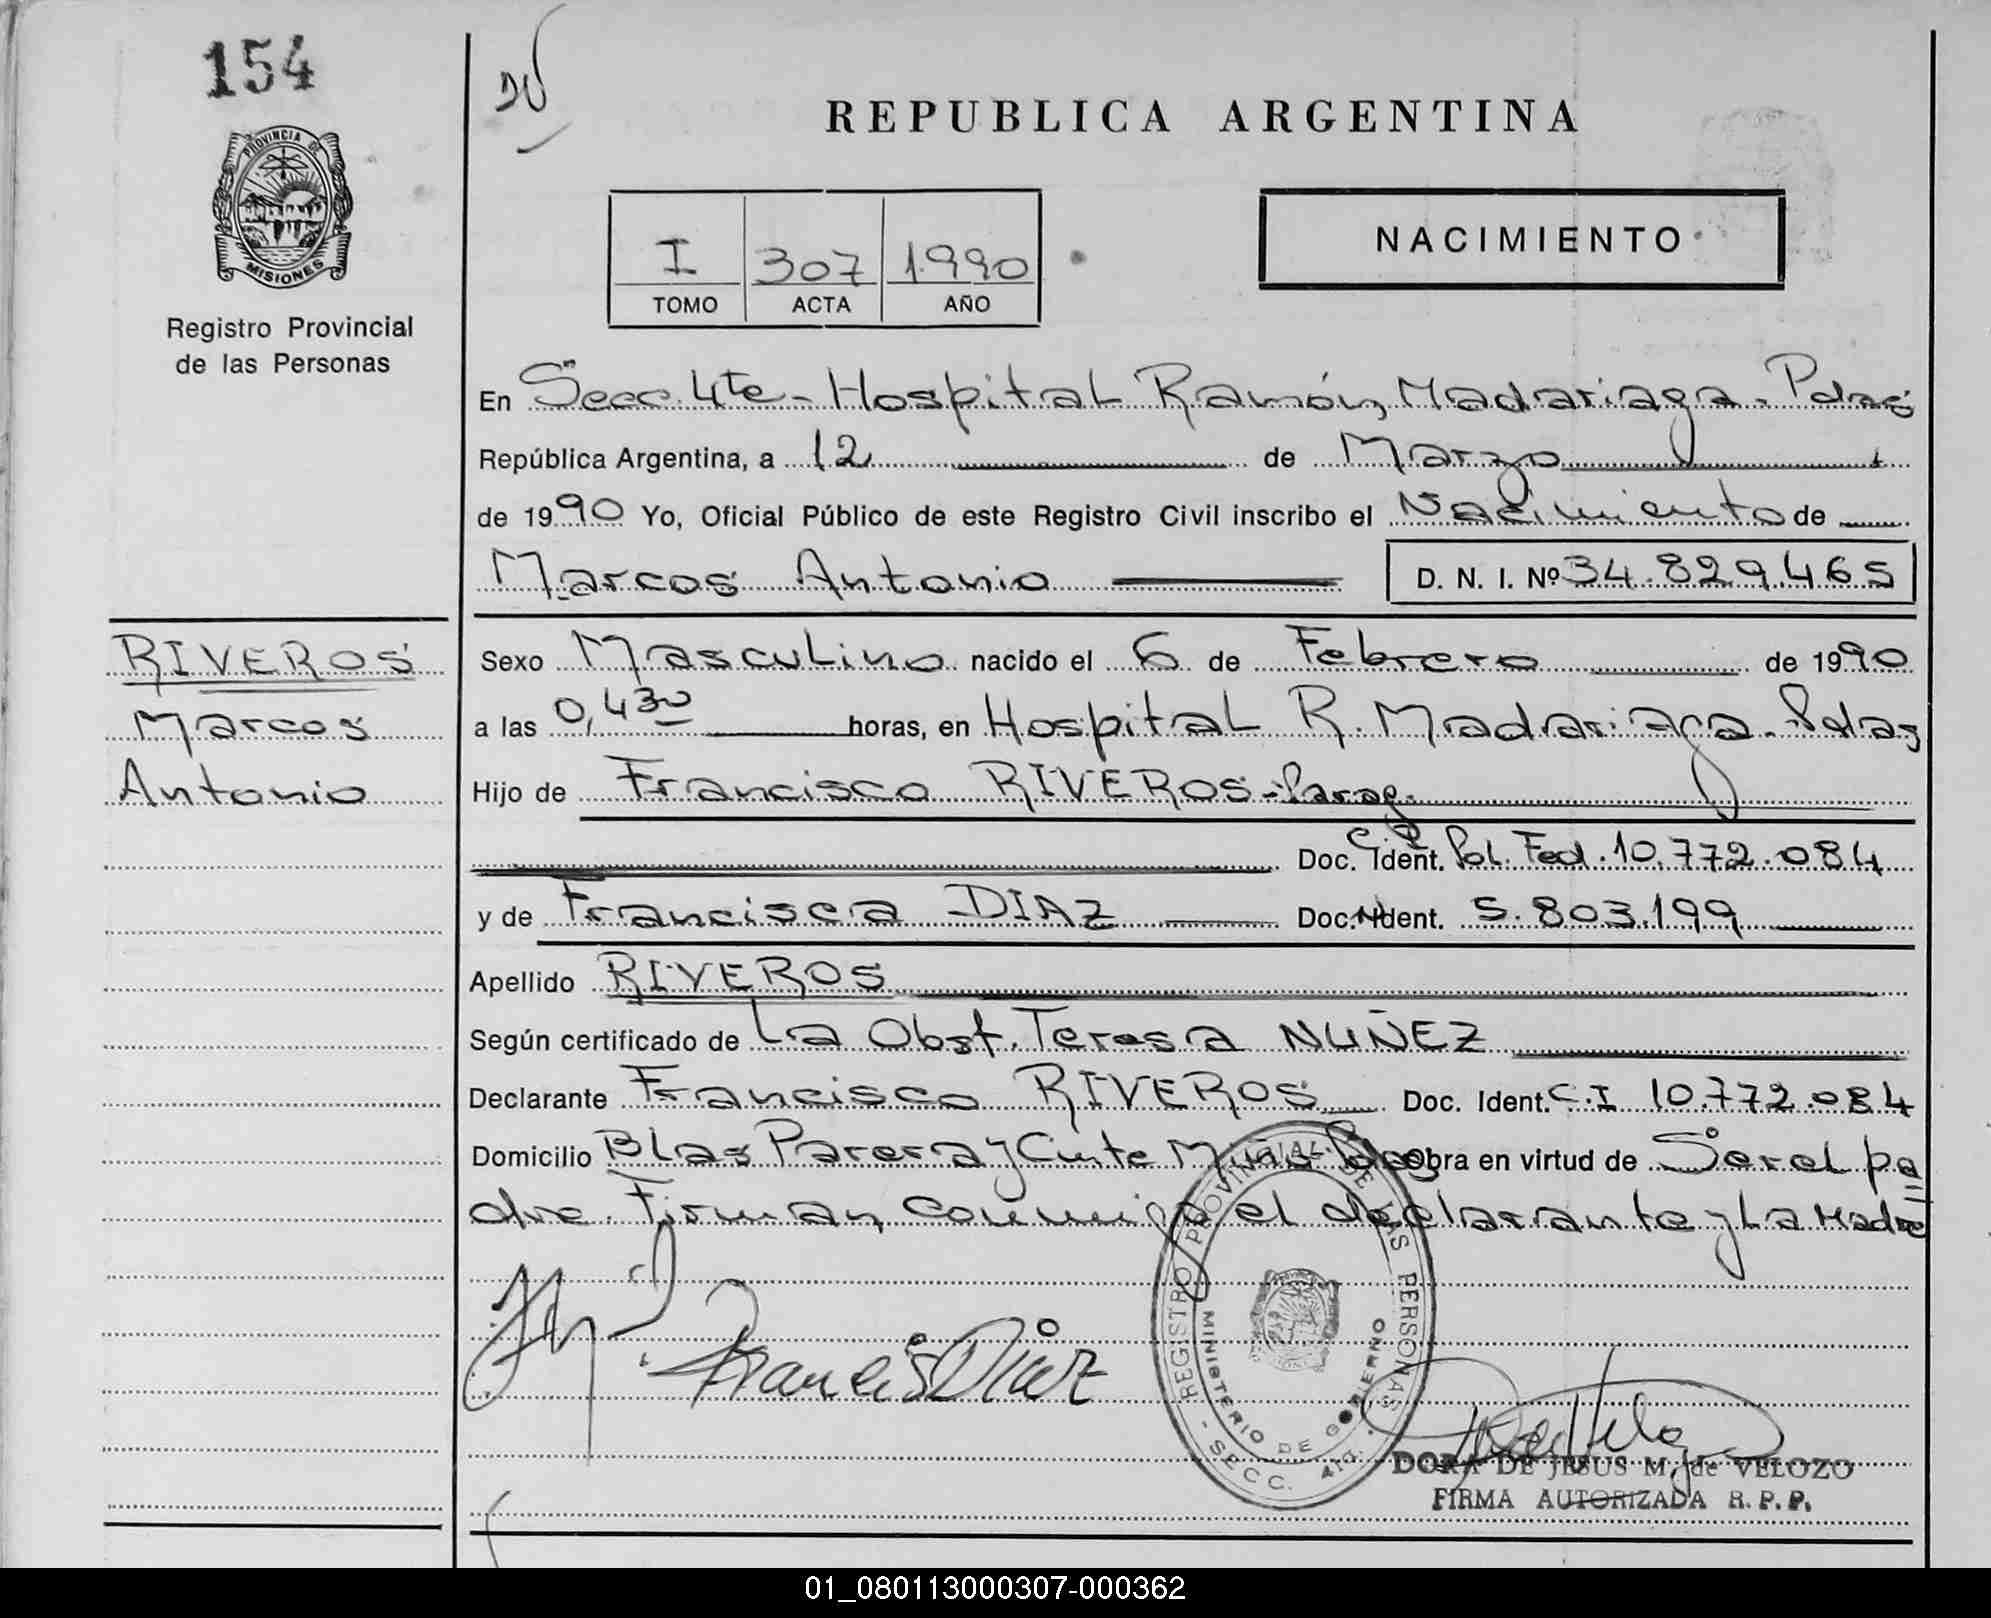 154
PROVINCIA DE
MISIONES
Registro Provincial
de las Personas
REPUBLICA ARGENTINA
NACIMIENTO
I 307 1990
TOMO ACTA AÑO
En Secc. 4te - Hospital Ramón Madariaga - Pdas
República Argentina, a 12 de Marzo
de 1990 Yo, Oficial Público de este Registro Civil inscribo el Nacimiento de
Marcos Antonio D. N. I. Nº 34.829.465
RIVEROS
Marcos
Antonio
Sexo Masculino nacido el 6 de Febrero de 1990
a las 0,430 horas, en Hospital R. Madariaga - Pdas
Hijo de Francisco RIVEROS - Parag.
Doc. Ident. Pol. Fed. 10.772.084
y de Francisca DIAZ Doc. Ident. 5.803.199
Apellido RIVEROS
Según certificado de La Obst. Teresa NUÑEZ
Declarante Francisco RIVEROS Doc. Ident. C.I 10.772.084
Domicilio Blas Parera y Obra en virtud de Ser el pa
dre. Firman conmigo el declarante y La Madre
Francis Diaz
REGISTRO PROVINCIAL DE LAS PERSONAS
MINISTERIO DE GOBIERNO
SECC. 4ta.
DORA DE JESUS M. de VELOZO
FIRMA AUTORIZADA R. P. P.
01_080113000307-000362